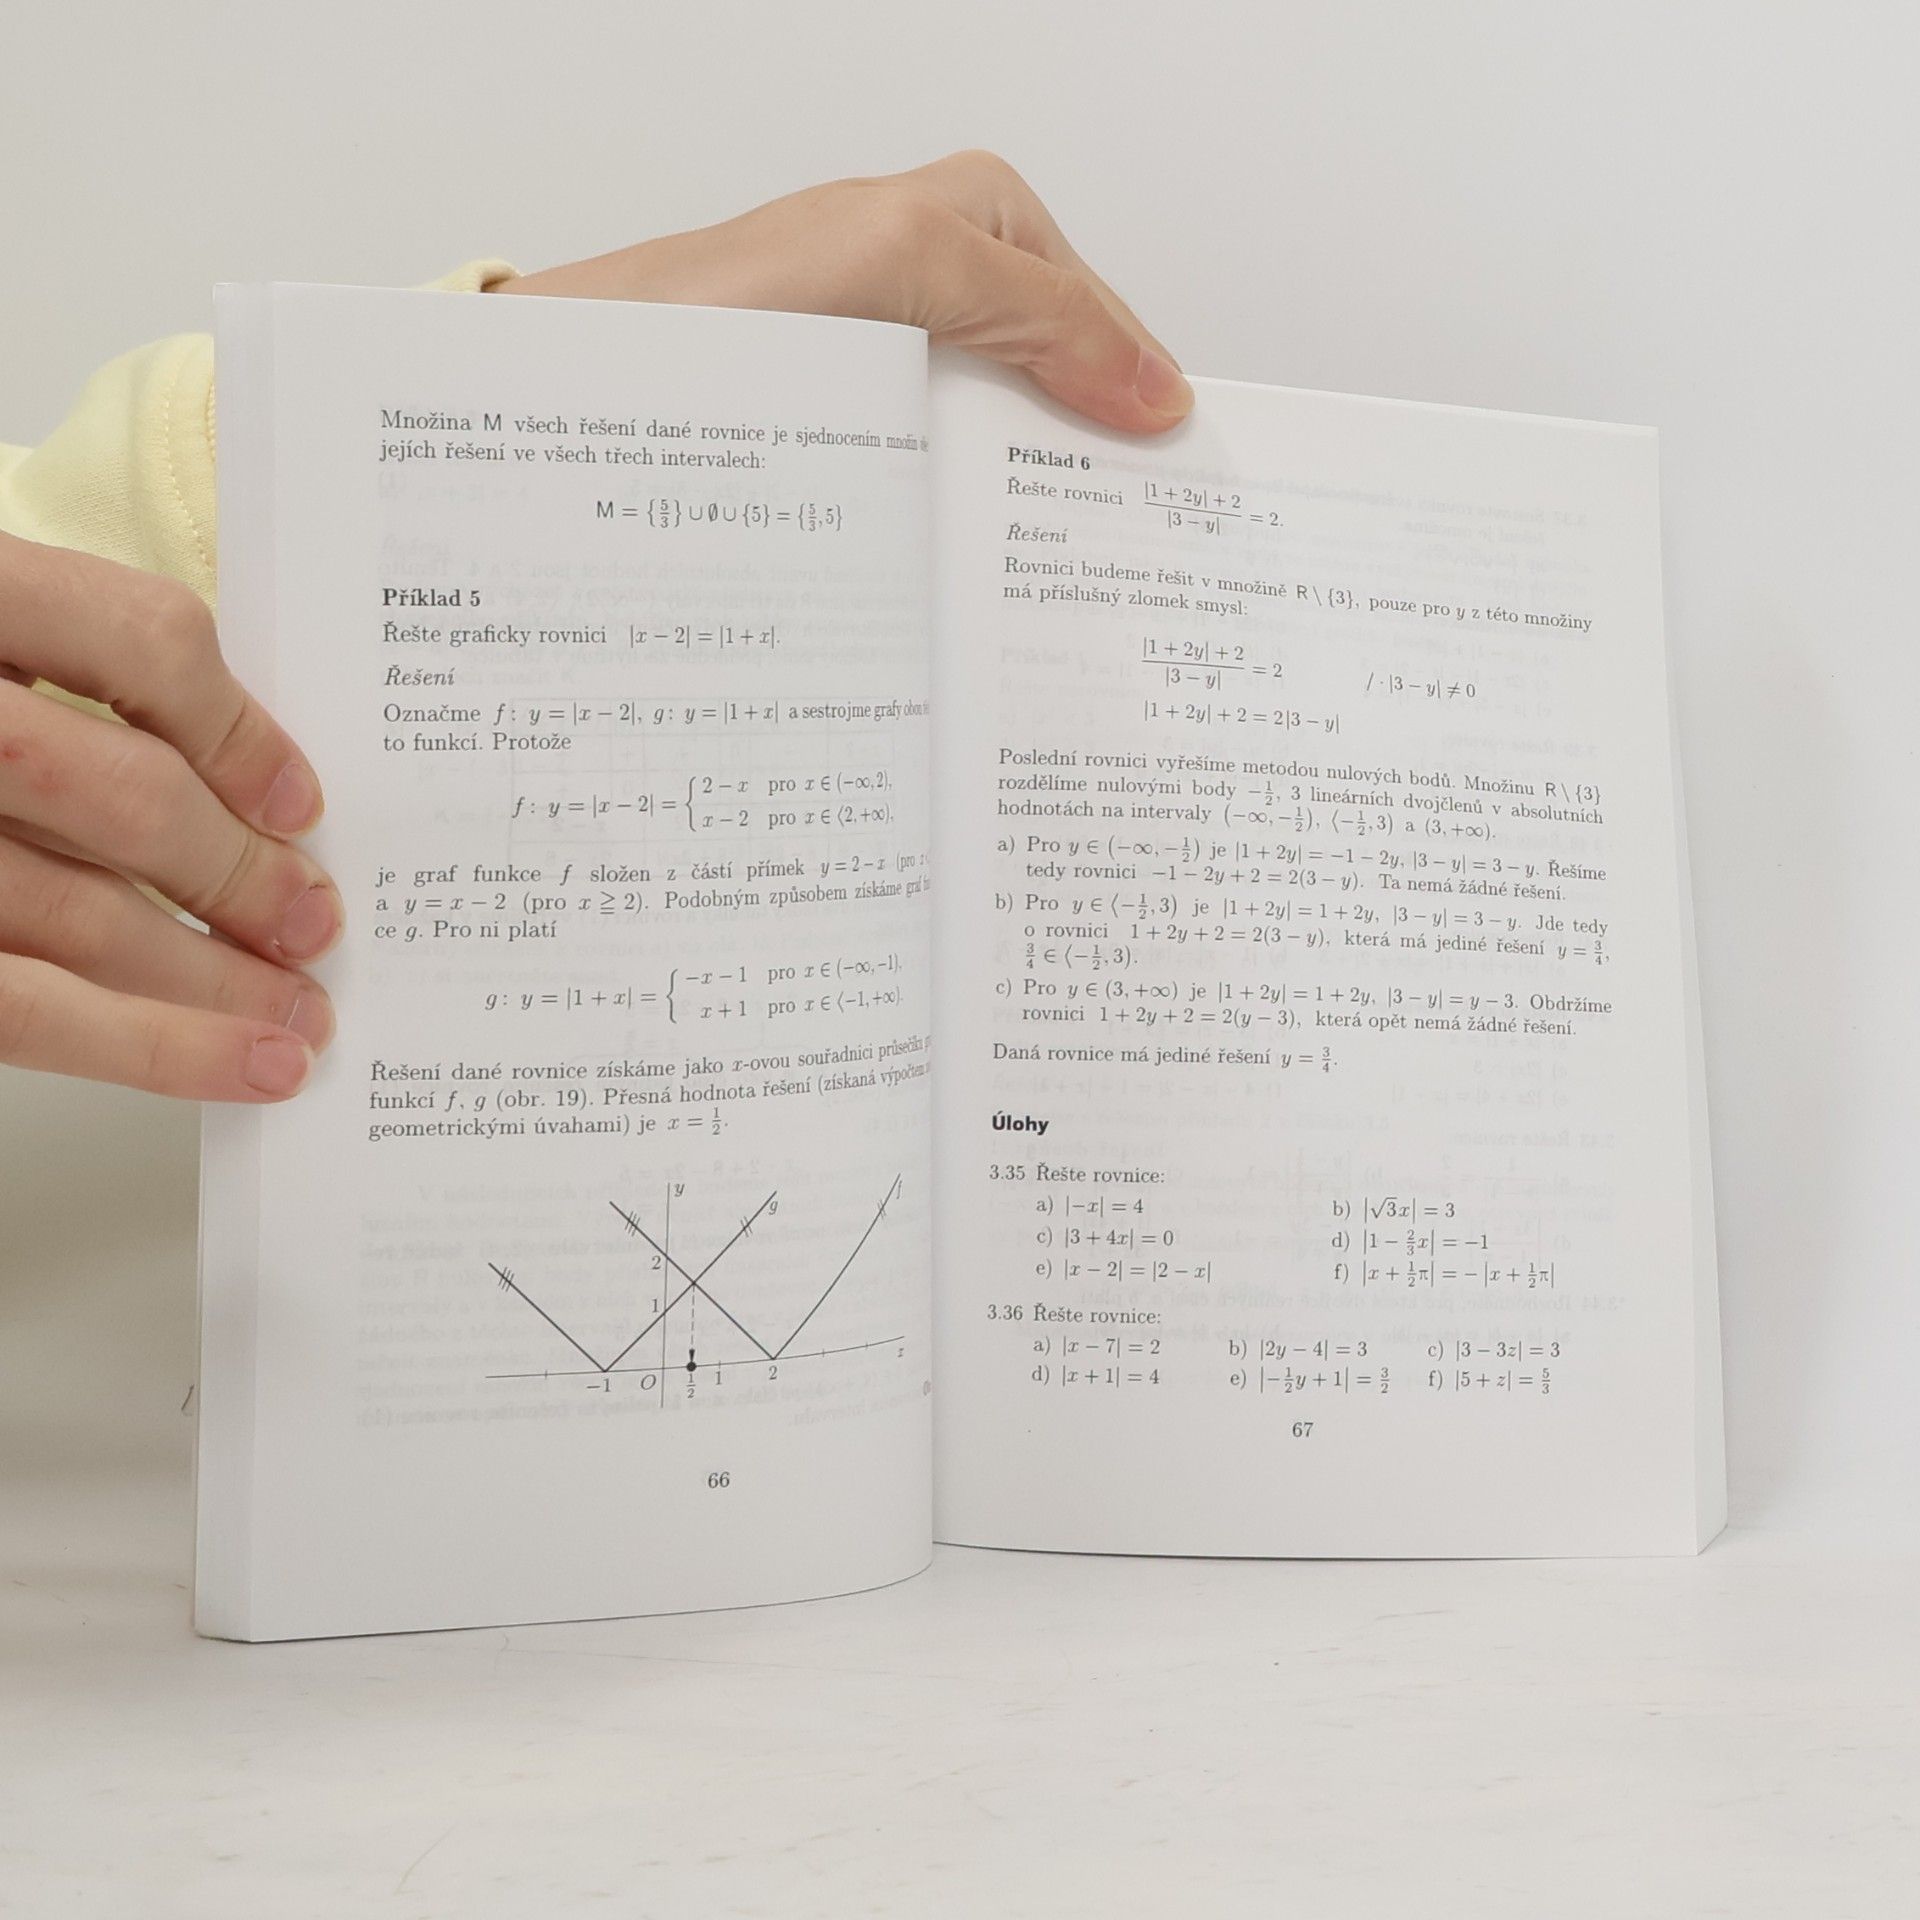 Množina M všech řešení dané rovnice je sjednocením množin
jejích řešení ve všech třech intervalech:
M = {5/3} ∪ ∅ ∪ {5} = {5/3, 5}
Příklad 5
Řešte graficky rovnici |x − 2| = |1 + x|.
Řešení
Označme f: y = |x − 2|, g: y = |1 + x| a sestrojme grafy obou
to funkcí. Protože
f: y = |x − 2| = { 2 − x pro x ∈ (−∞, 2),
x − 2 pro x ∈ ⟨2, +∞),
je graf funkce f složen z částí přímek y = 2 − x (pro
a y = x − 2 (pro x ≧ 2). Podobným způsobem získáme graf
ce g. Pro ni platí
g: y = |1 + x| = { −x − 1 pro x ∈ (−∞, −1),
x + 1 pro x ∈ ⟨−1, +∞).
Řešení dané rovnice získáme jako x-ovou souřadnici průsečíku
funkcí f, g (obr. 19). Přesná hodnota řešení (získaná výpočtem
geometrickými úvahami) je x = 1/2.
y
g
f
2
1
−1 O 1/2 1 2
66
Příklad 6
Řešte rovnici (|1 + 2y| + 2)/|3 − y| = 2.
Řešení
Rovnici budeme řešit v množině R \ {3}, pouze pro y z této množiny
má příslušný zlomek smysl:
(|1 + 2y| + 2)/|3 − y| = 2 / · |3 − y| ≠ 0
|1 + 2y| + 2 = 2|3 − y|
Poslední rovnici vyřešíme metodou nulových bodů. Množinu R \ {3}
rozdělíme nulovými body −1/2, 3 lineárních dvojčlenů v absolutních
hodnotách na intervaly (−∞, −1/2), ⟨−1/2, 3) a (3, +∞).
a) Pro y ∈ (−∞, −1/2) je |1 + 2y| = −1 − 2y, |3 − y| = 3 − y. Řešíme
tedy rovnici −1 − 2y + 2 = 2(3 − y). Ta nemá žádné řešení.
b) Pro y ∈ ⟨−1/2, 3) je |1 + 2y| = 1 + 2y, |3 − y| = 3 − y. Jde tedy
o rovnici 1 + 2y + 2 = 2(3 − y), která má jediné řešení y = 3/4,
3/4 ∈ ⟨−1/2, 3).
c) Pro y ∈ (3, +∞) je |1 + 2y| = 1 + 2y, |3 − y| = y − 3. Obdržíme
rovnici 1 + 2y + 2 = 2(y − 3), která opět nemá žádné řešení.
Daná rovnice má jediné řešení y = 3/4.
Úlohy
3.35 Řešte rovnice:
a) |−x| = 4 b) |√3x| = 3
c) |3 + 4x| = 0 d) |1 − 2/3x| = −1
e) |x − 2| = |2 − x| f) |x + 1/2π| = −|x + 1/2π|
3.36 Řešte rovnice:
a) |x − 7| = 2 b) |2y − 4| = 3 c) |3 − 3z| = 3
d) |x + 1| = 4 e) |−1/2y + 1| = 3/2 f) |5 + z| = 5/3
67